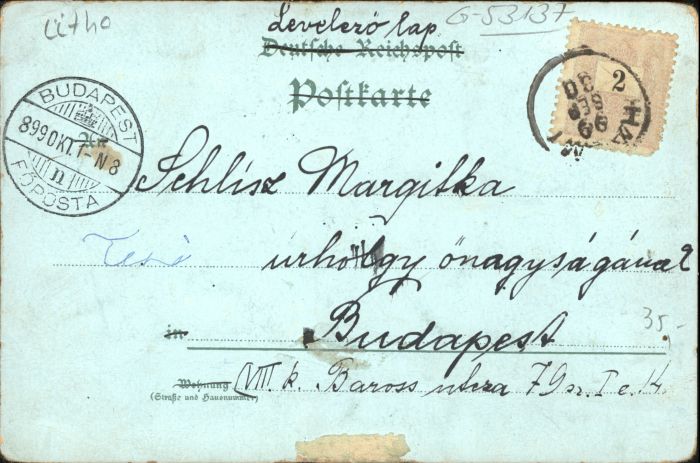 Litho
Levelező lap
G-53137
Deutsche Reichspost
Postkarte
2
99 SEP 30
BUDAPEST
899 OKT 1 - N 8
n
FŐPOSTA
An
Schlisz Margitka
úrhölgy önagyságának
in Budapest
35-
Wohnung VIII. k. Baross utcza 79 sz. I e. 14.
(Straße und Hausnummer)